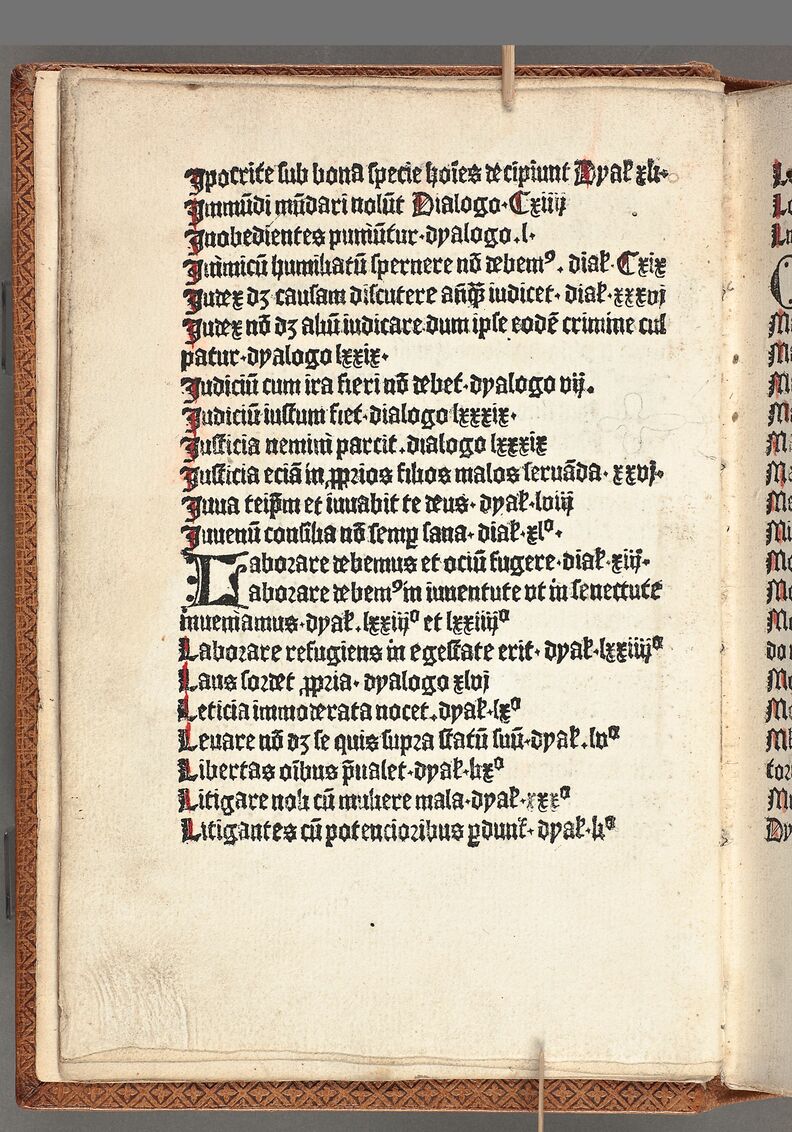 Ipocrite sub bona specie hoı̄es decipiunt Dyal xli·
Immūdi mūdari nolūt Dialogo·Cxiiij
Inobedientes puniūtur·dyalogo.l·
Inimicū humiliatū spernere nō debemꝰ. dial·Cxix
Iudex dꝫ causam discutere anq̄ȝ iudicet·dial·xxxvj
Iudex nō dꝫ aliū iudicare dum ipse eodē crimine cul
patur·dyalogo lxxix·
Iudiciū cum ira fieri nō debet·dyalogo vij.
Iudiciū iustum fiet·dialogo lxxxix·
Iusticia nemini parcit.dialogo lxxxix
Iusticia eciā in ꝓprios filios malos seruāda·xxvj·
Iuua teip̄m et iuuabit te deus·dyal·lviij
Iuuenū consilia nō semꝑ sana·dial·xlᵒ·
Laborare debemus et ociū fugere·dial·xiij·
Laborare debemꝰ in iuuentute vt in senectute
inueniamus·dyal.lxxiijᵒ et lxxiiijᵒ
Laborare refugiens in egestate erit·dyal·lxxiiijᵒ
Laus sordet ꝓpria·dyalogo xlvj
Leticia immoderata nocet.dyal·lxᵒ
Leuare nō dꝫ se quis supra statū suū·dyal.lvᵒ
Libertas oı̄bus p̄ualet·dyal·lixᵒ
Litigare noli cū muliere mala·dyal·xxxᵒ
Litigantes cū potencioribus ꝑdunt·dyal·liᵒ